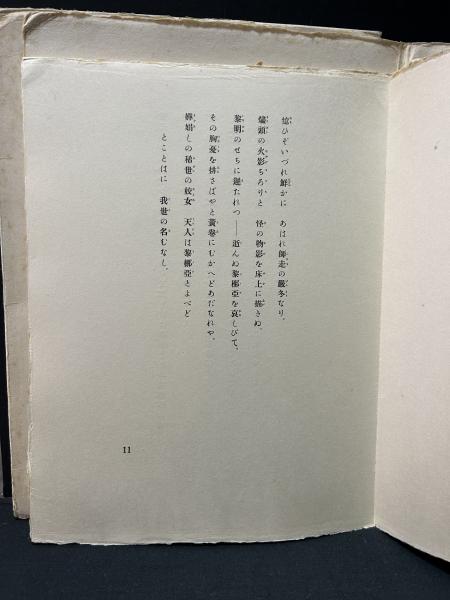 憶ひぞいづれ鮮かに　あはれ師走の嚴冬なり、
燼頭の火影ちろりと　怪の物影を床上に描きぬ、
黎明のせちに遲たれつ――逝んぬ黎梛亞を哀しびて、
その胸憂を排さばやと黃卷にむかへどあだなれや、
嬋娟しの稀世の姣女　天人は黎梛亞とよべど
とことはに　我世の名むなし、
11